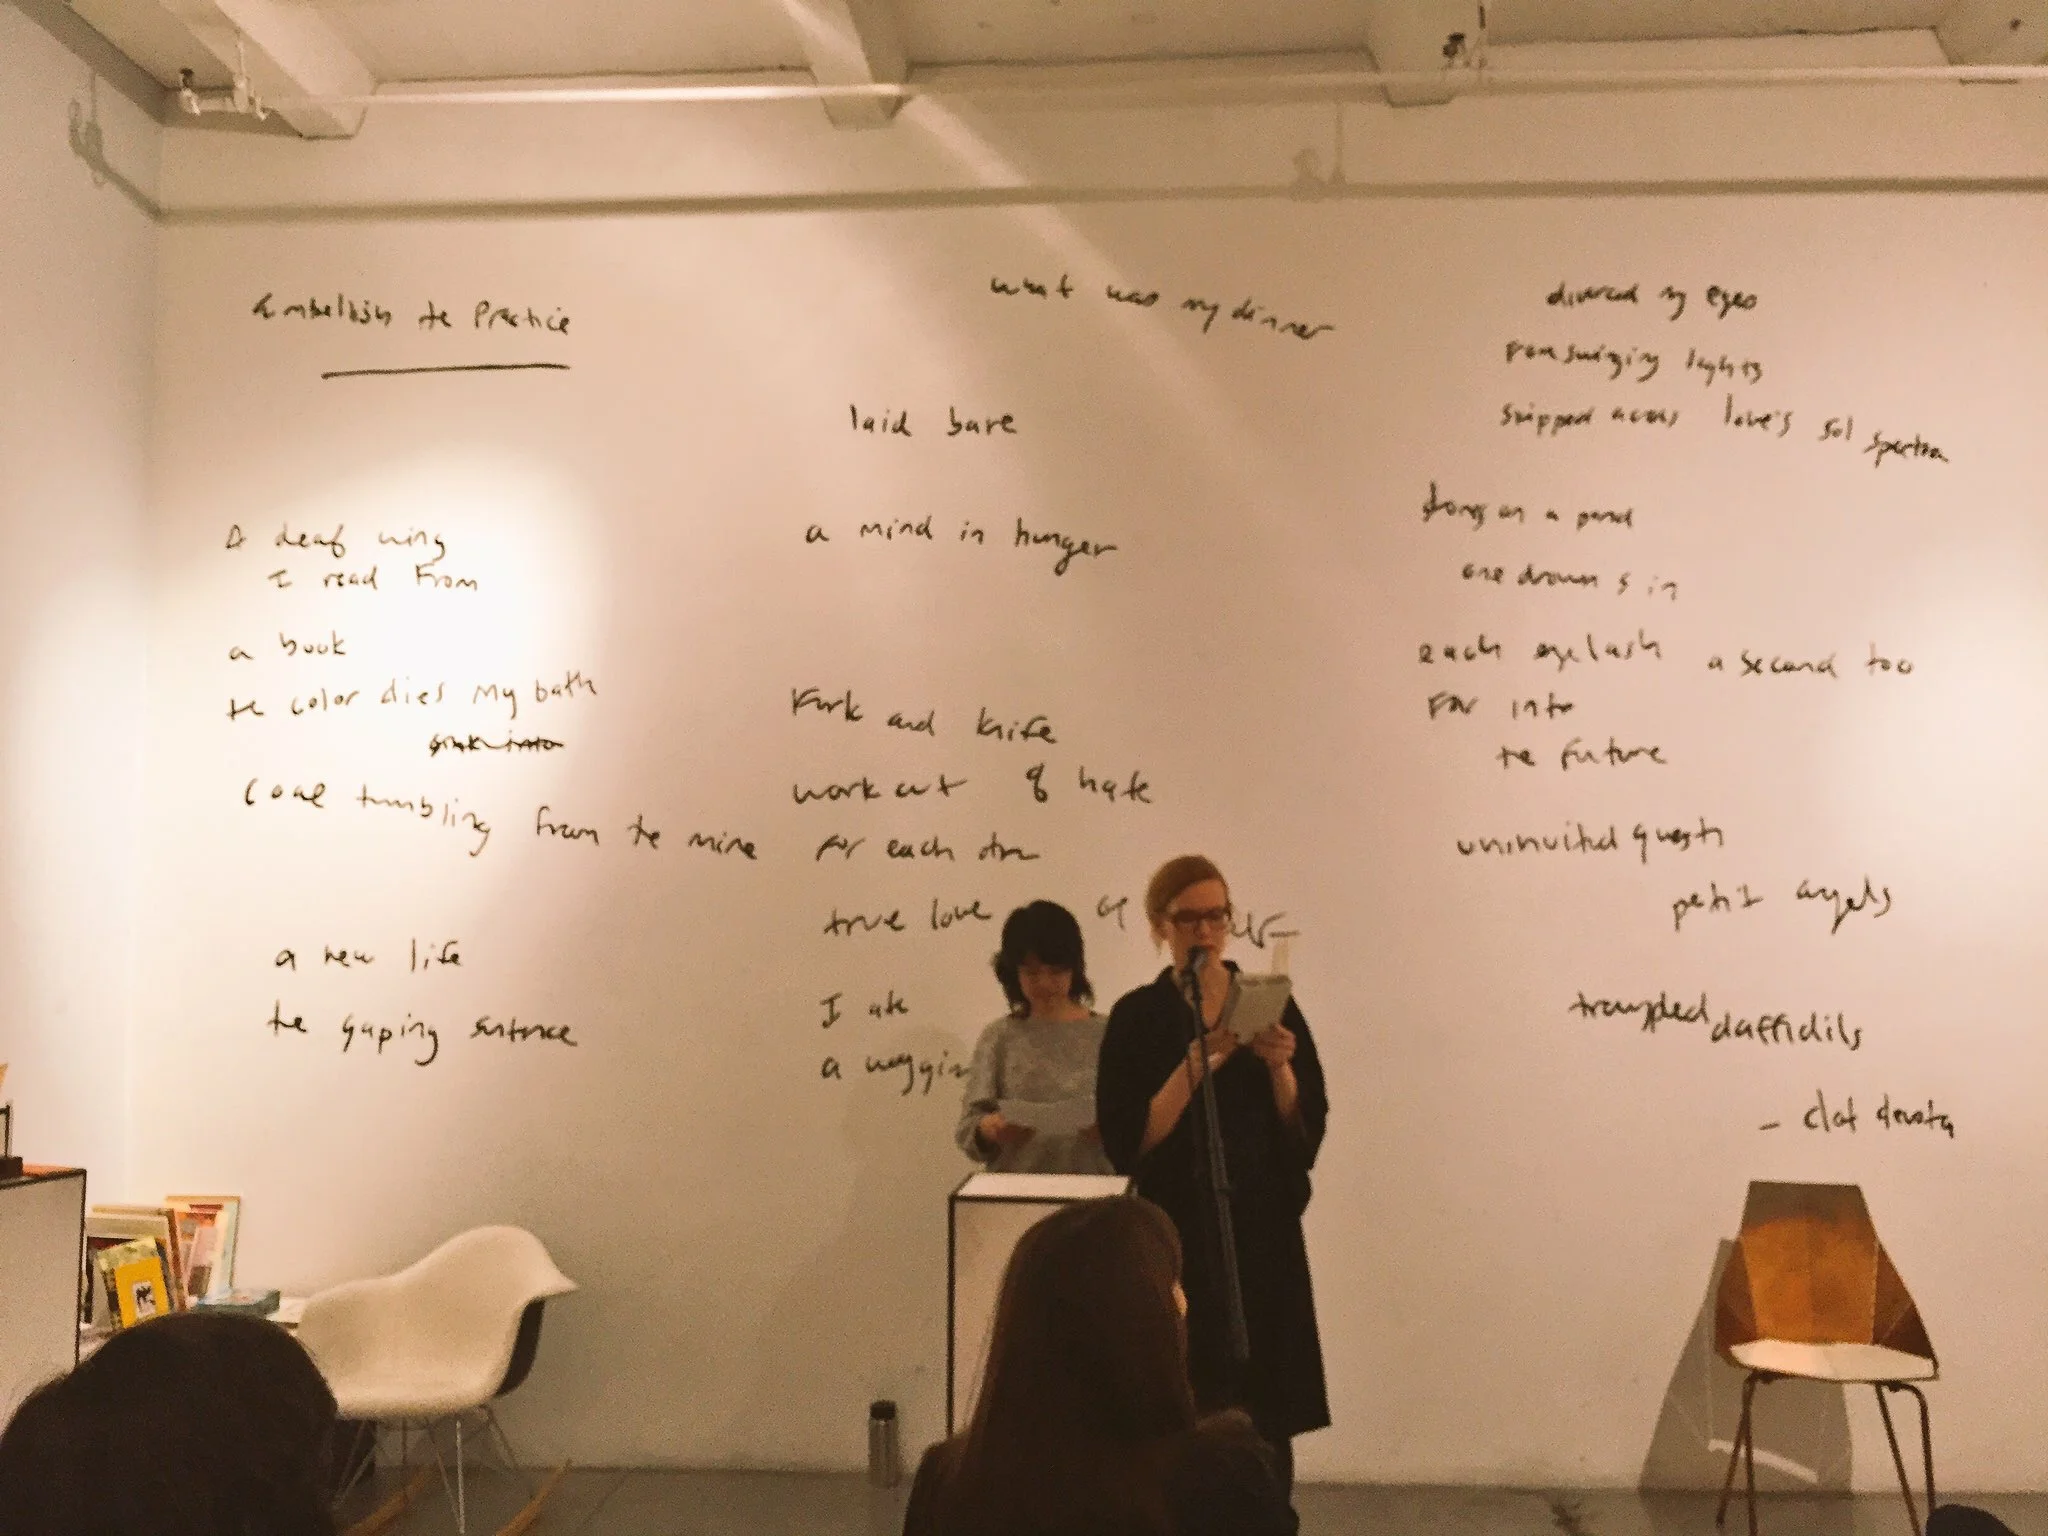 Embellish te Practice
A deaf wing
I read From
a book
te color dies my bath
sink into
Coal tumbling from te mine
a new life
te gaping sentence
what was my dinner
laid bare
a mind in hunger
Fork and knife
work out of hate
for each
true love
I ate
a
my eyes
lights
love's sol spectra
on a
one drowns in
each eyelash a second too
Far into
te Future
uninvited guests
petit angels
trampled daffidils